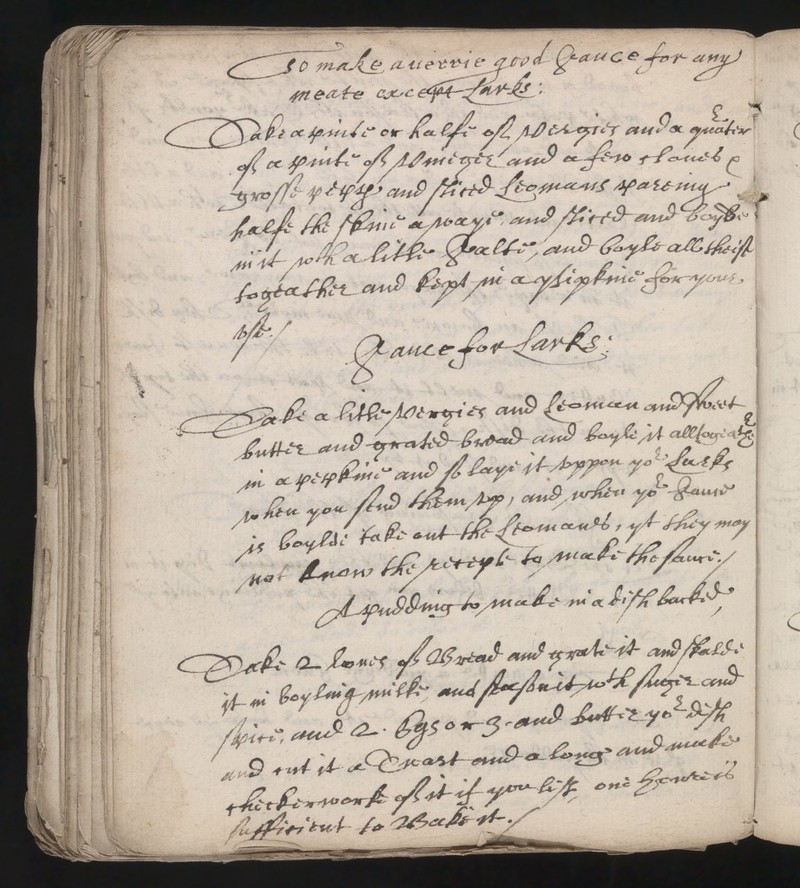 To make a verrie good Sauce for any
meate except Larks:
Take a pinte or halfe of Vergies and a quater
of a pinte of Vineger and a few cloves &
grosse pepp and sliced Leomans pareing
halfe the skine a waye, and sliced and boylde
in it wth a litle Salte, and boyle all theise
togeather and kept in a pipkine for your
vse./
Sauce for Larks:
Take a litle Vergies and Leoman and sweet
butter and grated bread and boyle it all togeather
in a pepkine and so laye it vppon yor Larks
when you send them vp, and when yor Sauce
is boylde take out the Leomands, yt they may
not know the recepte to make the sauce./
A pudding to make in a dish backed,
Take 2 loves of Bread and grate it and skalde
it in boyling milke, and season it wth suger and
spice, and 2 Egs or 3 and butter yor dish
and cut it a Twart and a longe and make
checkerworke of it if you list, one hower is
sufficient to Bake it./